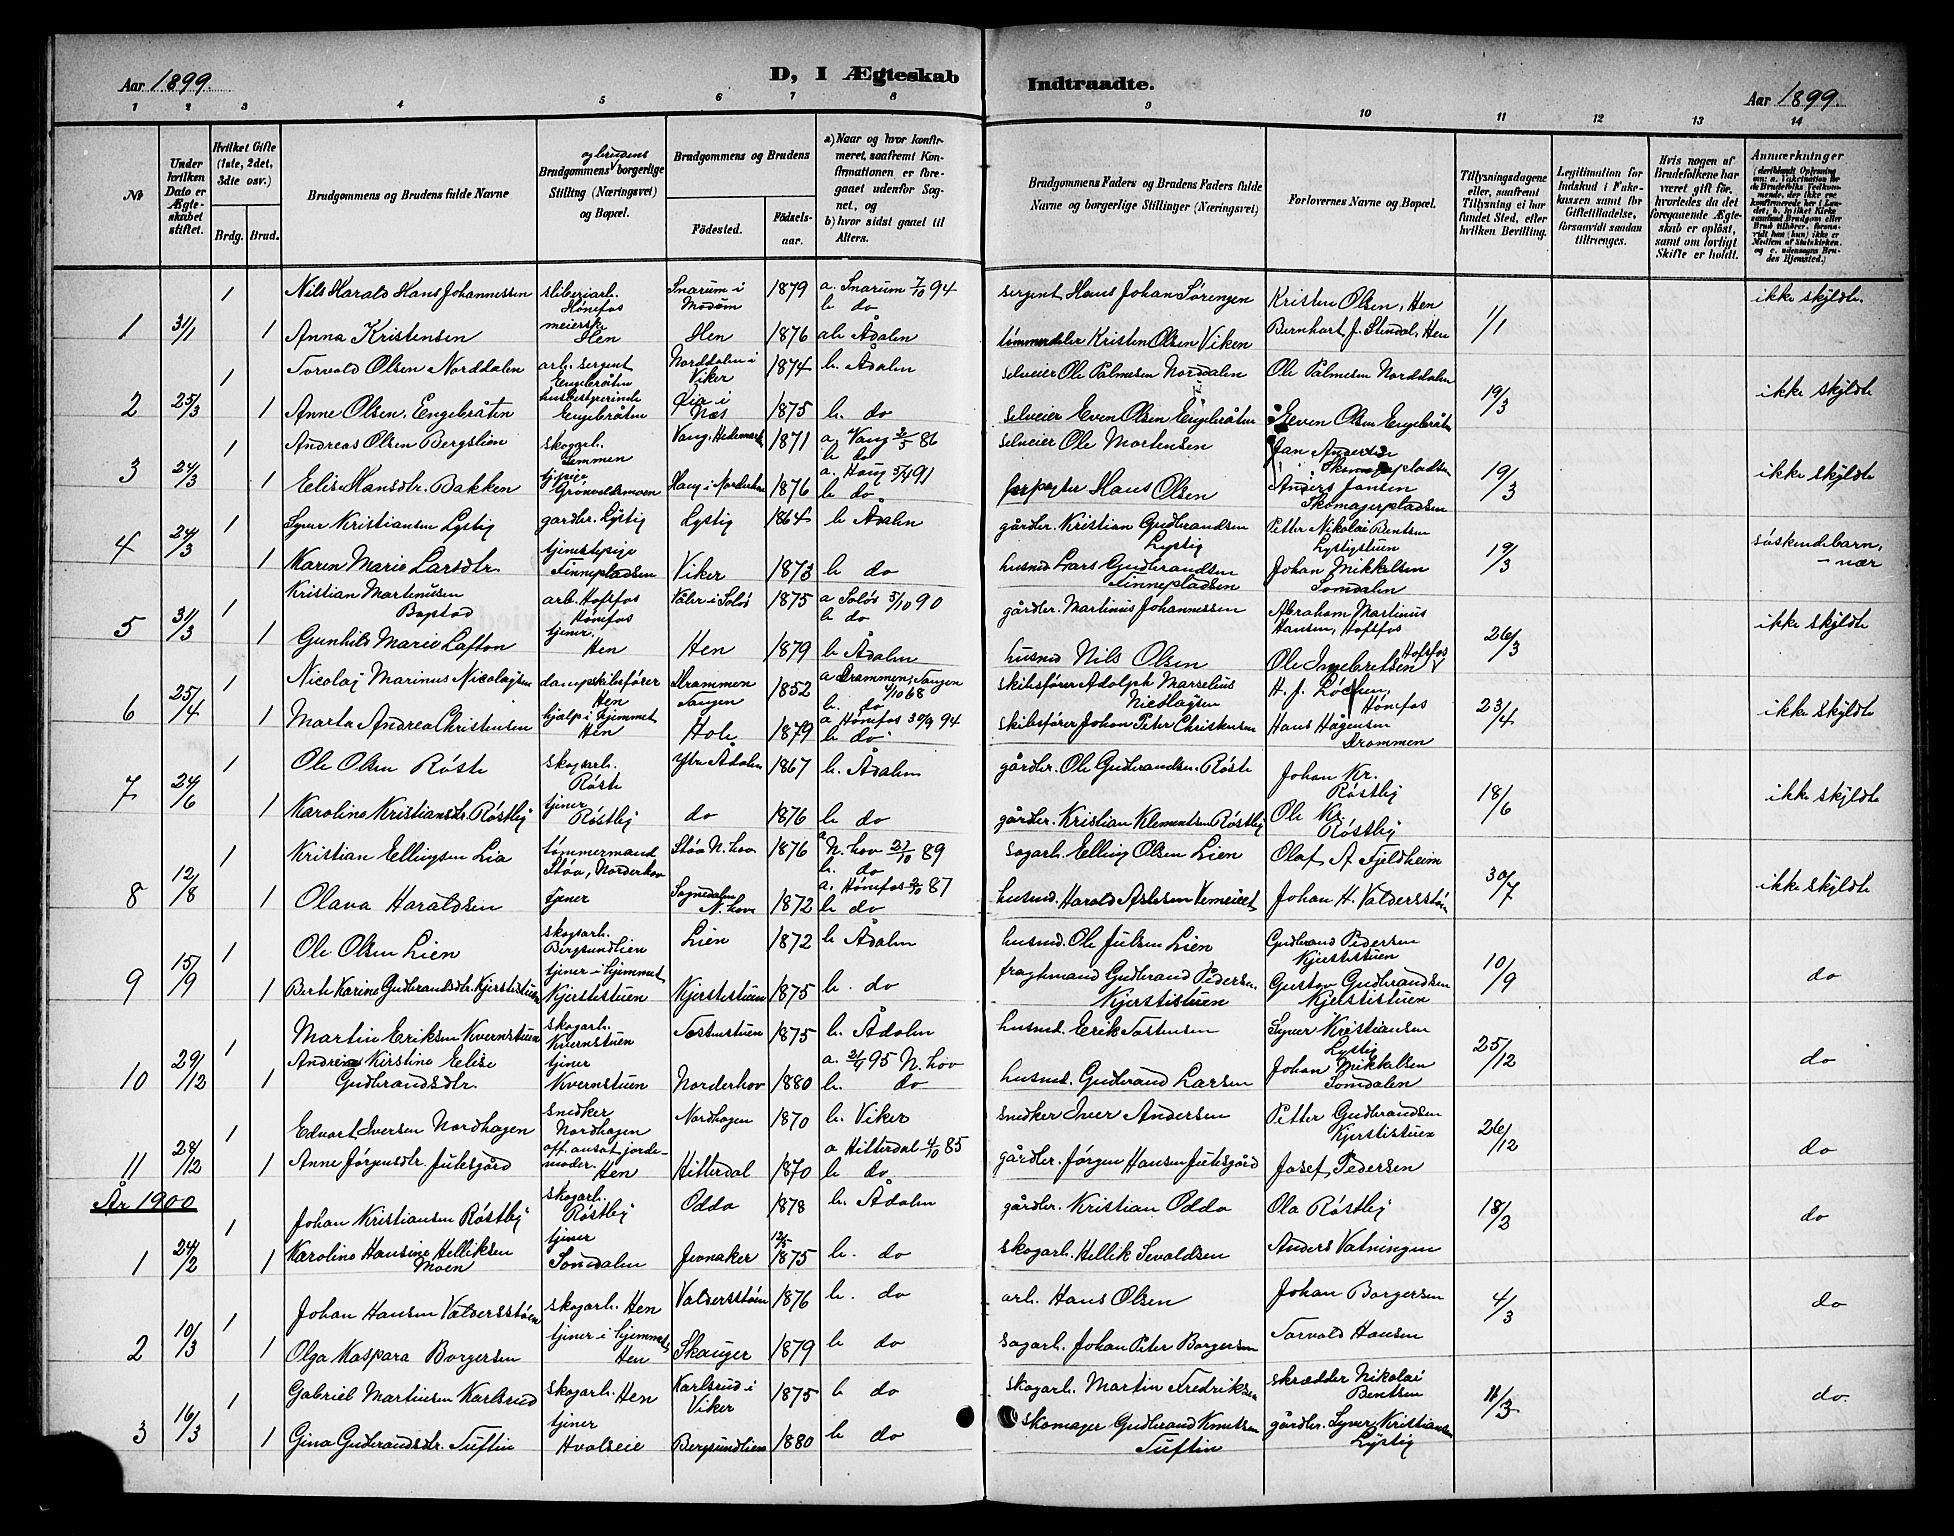 Aar 1899. D, I Ægteskab
Indtraadte. Aar 1899.
1 2 3 4 5 6 7 8
9 10 11 12 13 14
№
Under hvilken Dato er Ægteskabet stiftet.
Hvilket Gifte (1ste, 2det, 3dte osv.)
Brdg. Brud.
Brudgommens og Brudens fulde Navne
Brudgommens og brudens borgerlige Stilling (Næringsvei) og Bopæl.
Brudgommens og Brudens
Fødested. Fødselsaar.
a) Naar og hvor konfirmeret, saafremt Konfirmationen er foregaaet udenfor Sognet, og
b) hvor sidst gaaet til Alters.
Brudgommens Faders og Brudens Faders fulde Navne og borgerlige Stillinger (Næringsvei)
Forlovernes Navne og Bopæl.
Tillysningsdagene eller, saafremt Tillysning ei har fundet Sted, efter hvilken Bevilling.
Legitimation for Indskud i Fakekassen samt for Giftetilladelse, forsaavidt saadan tiltrænges.
Hvis nogen af Brudefolkene har været gift før, hvorledes da det foregaaende Ægteskab er opløst, samt om lovligt Skifte er holdt.
Anmærkninger
1 31/1 1 Nils Harald Hans Johannessen sliberiarb. Hønefos Snarum i Modum 1879 a. Snarum 7/10 94 b. do sergent Hans Johan Sørengen Kristen Olsen, Hen 1/1 ikke skyldte.
1 Anna Kristensen meierske Hen Hen 1876 ab. Ådalen tømmerdeler Kristen Olsen Viken Bernhart J. Stendal, Hen
2 25/3 1 Torvald Olsen Norddalen arb. sergent Engebråten Norddalen i Viker 1874 b. Ådalen selveier Ole Pålmesen Norddalen Ole Pålmesen Norddalen 19/3 ikke skyldte
1 Anne Olsen Engebråten husbestyrerinde Engebråten Næs 1875 b. do selveier Even Olsen Engebråten Even Olsen Engebråten
3 24/3 1 Andreas Olsen Bergslien skogarb. Vang, Hedemark 1871 a. Vang 86 b. do selveier Ole Mortensen Jan Andersen Skomagerpladsen 19/3 ikke skyldte
1 Elise Hansdtr. Bakken tjpige Grønvoldsmoen Haug i Norderhov 1876 a. Haug 91 b. do Hans Olsen Anders Jansen Skomagerpladsen
4 24/3 1 Syver Kristiansen Lystig gardbr. Lystig Lystig 1864 b. Ådalen gårdbr. Kristian Gudbrandsen Lystig Petter Nikolai Bentsen Lystigstuen 19/3 søskendebarn, nær
1 Karen Marie Larsdtr. tjenestepige Finnepladsen Viker 1873 b. do husmd. Lars Gudbrandsen Finnepladsen Johan Mikkelsen Somdalen
5 31/3 1 Kristian Martinusen Bapstad arb. Hofsfos Hønefos Våler i Solør 1875 a Solør 5/10 90 b. do gårdbr. Martinus Johannessen Abraham Martinus Hansen, Hofsfos 26/3 ikke skyldte
1 Gunhild Marie Lafton tjener. Hen Hen 1879 b. Ådalen husmd Nils Olsen Ole Ingebretsen Hofsfos
6 25/4 1 Nicolaj Marinus Nicolajsen dampskibsfører Hen Drammen Tangen 1852 a Drammen, Tangen 4/10 68 b. do skibsfører Adolph Marselius Nicolaysen H. J. Løchen, Hønefos 23/4 ikke skyldte
1 Marta Andrea Christensen hjælp i hjemmet Hen Hole 1879 a. Hønefos 30/9 94 b. do skibsfører Johan Peter Christensen Hans Hågensen Drammen
7 24/6 1 Ole Olsen Røste skogarb. Røste Ytre Ådalen 1867 b. Ådalen gårdbr. Ole Gudbrandsen Røste Johan Kr. Røstby 18/6 ikke skyldte
1 Karoline Kristiansdtr. Røstby tjener Røstby do 1876 b. do gårdbr. Kristian Klementsen Røstby Ole Kr. Røstby
8 12/8 1 Kristian Ellingsen Lia tømmermand Støa, Norderhov Støa N. hov 1876 a N. hov 89 b. do sagarb. Elling Olsen Lien Olaf A. Fjeldheim 30/7 ikke skyldte
1 Olava Haraldsen tjener Sognedalen N. hov 1872 a. Hønefos 2/10 87 b do husmd. Harald Aslesen Vemeiet Johan H. Valdersstøen
9 15/9 1 Ole Olsen Lien skogsarb. Bergsundlien Lien 1872 b Ådalen husmd. Ole Julsen Lien Gudbrand Pedersen Kjerstistuen 10/9 do
1 Berte Karine Gudbrandsdtr. Kjerstistuen tjener i hjemmet Kjerstistuen Kjerstistuen 1875 b. do fragtmand Gudbrand Pedersen Kjerstistuen Gustav Gudbrandsen Kjerstistuen
10 29/12 1 Martin Eriksen Kvernstuen skogarb. Kvernstuen Tostenstuen 1875 b. Ådalen husmd. Erik Tostensen Syver Kristiansen Lystig 25/12 do
1 Andrea Kirstine Elise Gudbrandsdtr. tjener Kvernstuen Norderhov 1880 a. 95 N. hov b. do husmd. Gudbrand Larsen Johan Mikkelsen Somdalen
11 28/12 1 Edvart Iversen Nordhagen snedker Nordhagen Nordhagen 1870 b. Viker snedker Iver Andersen Petter Gudbrandsen Kjerstistuen 26/12 do
1 Anne Jørgensdtr. Julesgård off. ansat jordemoder. Hen Hitterdal 1870 a Hitterdal 4/10 85 b do gårdbr. Jørgen Hansen Julesgård Josef Pedersen
År 1900
1 24/2 1 Johan Kristiansen Røstby skogarb. Røstby Odda 1878 b. Ådalen gårdbr. Kristian Odda Ola Røstby 18/2 do
1 Karoline Hansine Helliksen Moen tjener Somdalen Jevnaker 12/5 1875 b. do skogarb. Hellik Sevaldsen Anders Vatningen
2 10/3 1 Johan Hansen Valdersstøen skogarb. Hen Valdersstøen 1876 b. do arb. Hans Olsen Johan Borgersen 4/3 do
1 Olga Kaspara Borgersen tjener i hjemmet Hen Skauger 1879 b do sagarb. Johan Peter Borgersen Torvald Hansen
3 16/3 1 Gabriel Martinsen Karlsrud skogarb. Hen Karlsrud i Viker 1875 b do skogarb. Martin Fredriksen skrædder Nikolai Bentsen 11/3 do.
1 Gina Gudbrandsdtr. Tuftin tjener Hvalseie Bergsundlien 1880 b do skomager Gudbrand Knutsen Tuftin gårdbr. Syver Kristiansen Lystig